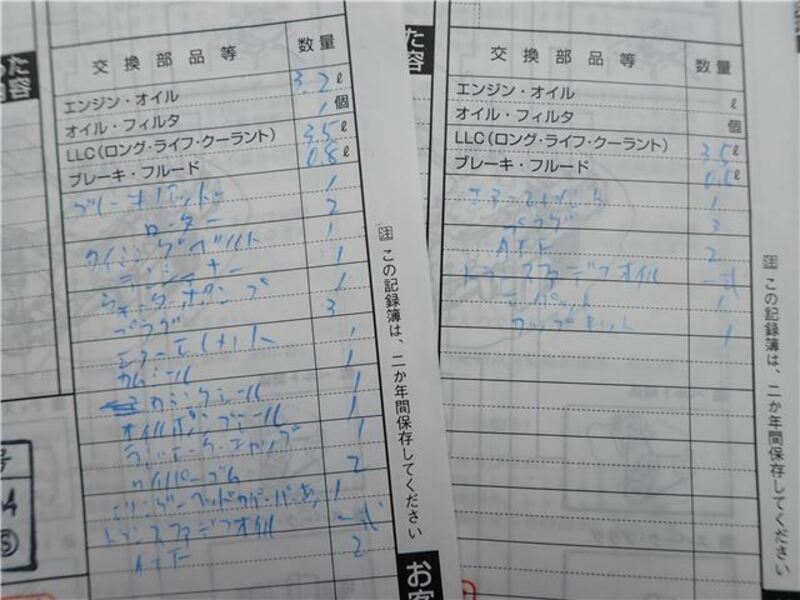 交換部品等 数量
エンジン・オイル 3.2ℓ
オイル・フィルタ 1個
LLC(ロング・ライフ・クーラント) 3.5ℓ
ブレーキ・フルード 0.8ℓ
ブレーキパット 1
ローター 2
タイミングベルト 1
テンショナー 1
ウォーターポンプ 1
プラグ 3
エアーエレメント 1
カムシール 1
クランクシール 1
オイルポンプシール 1
ラジエーターキャップ 1
ワイパーゴム 2
シリンダーヘッドカバーパッキン 1
トランスファデフオイル 一式
ATF 2
注 この記録簿は、二か年間保存してください
お客
った
内容
交換部品等 数量
エンジン・オイル ℓ
オイル・フィルタ 個
LLC(ロング・ライフ・クーラント) 3.5ℓ
ブレーキ・フルード 0.5ℓ
エアーエレメント 1
プラグ 3
ATF 2
トランスファデフオイル 一式
パット 1
カップキット 1
注 この記録簿は、二か年間保存してください
た
容